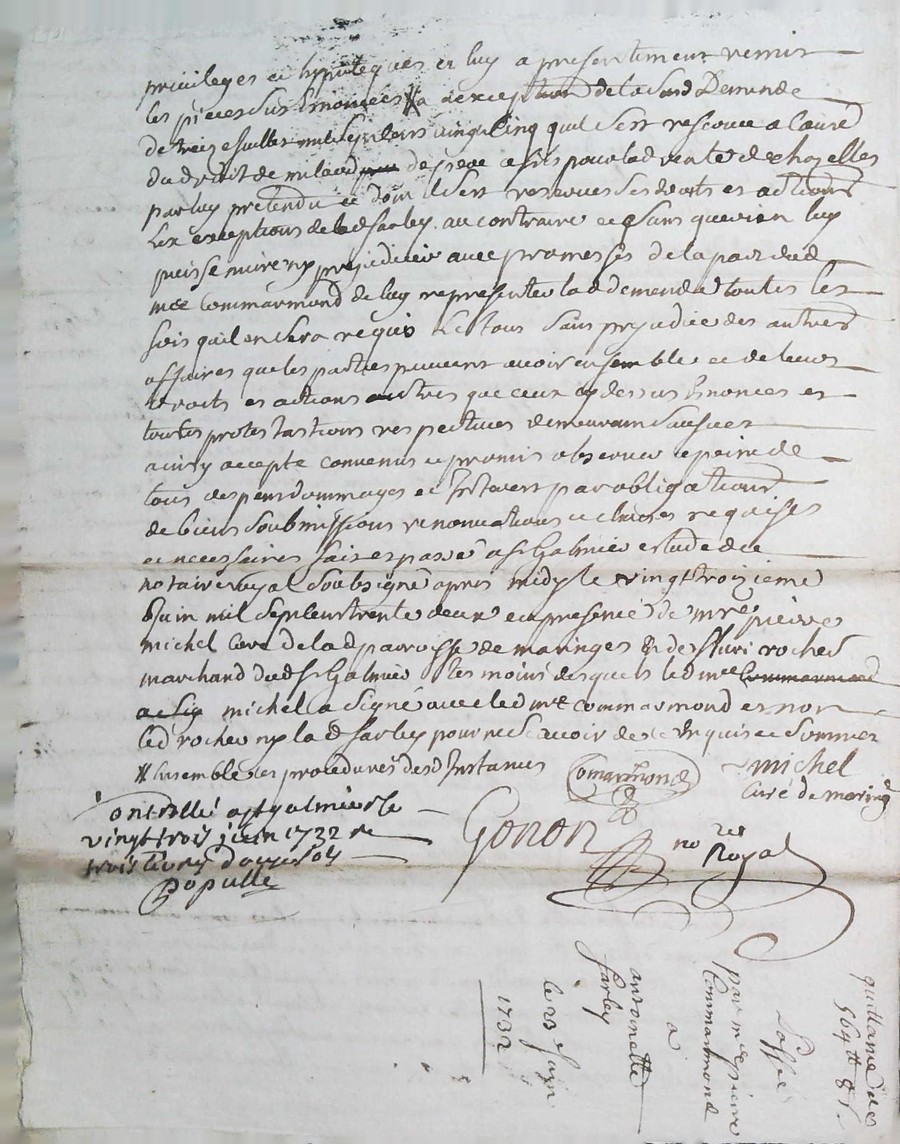 privileges et hypoteques et luy a presentement remis
les pieces sus Enoncées # a lexception de la sud Demande
de treize juillet mil sept cens vingt cinq quil sest reservé a cause
du droit de milaud de par ladvente de chazelles
par luy pretendu et dont il sest reservé ses droits et actions
Les exceptions de lad farley au contraire et sans que rien luy
puisse nuire ny prejudicier avec promesses de la part dud
mre Commarmond de luy representer lad demende toutes les
fois quil en sera requis Le tous sans prejudice des autres
affaires que les parties peuvent avoir ensemble et de leurs
droits et actions autres que ceux cy dessus Enoncees et
toutes protestations respectives demeurant saufves
ainsy accepté convenu et promis observer a peine de
tous despens dommages et Interest par obligations
de biens soubmissions renonciations et clauses requises
et necessaires fait et passé a St Galmier estude du
notaire royal soubsigné apres midy le vingt troizieme
Juin mil sept cent trente deux en presence de mre pierre
michel curé de lad parroisse de maringes & de fluri rochet
marchand dud St Galmier tesmoins desquels led mre Commarmond
a sig michel a signé avec led mre commarmond et non
led rocher ny lad farley pour ne scavoir de ce Enquis et sommer
# Ensemble les procedures desd Instances
Commarmond
michel
curé de maringe
Gonon nore Royal
Controllé a st galmier le
vingt trois juin 1732 re
trois livres douze sols
Populle
quittance de
564 tt 8 s.
passé
par mre pierre
Commarmond
a
antoinette
farley
le 23 Juin
1732